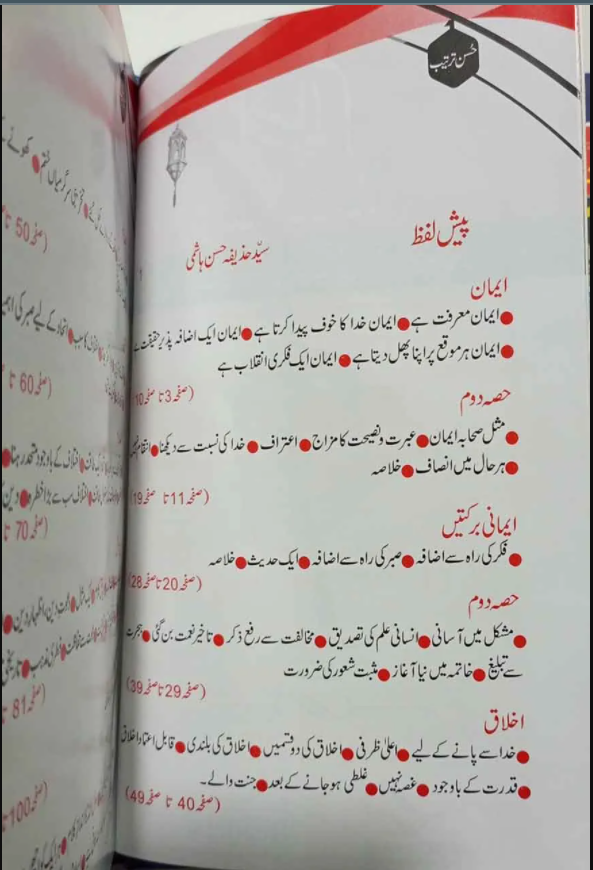 حُسن ترتیب
پیش لفظ
سیّد حذیفہ حسن ہاشمی
1
ایمان
● ایمان معرفت ہے ● ایمان خدا کا خوف پیدا کرتا ہے ● ایمان ایک اضافہ پذیر حقیقت ہے
● ایمان ہر موقع پر اپنا پھل دیتا ہے ● ایمان ایک فکری انقلاب ہے
(صفحہ 3 تا صفحہ 10)
حصہ دوم
● مثل صحابہ ایمان ● عبرت و نصیحت کا مزاج ● اعتراف ● خدا کی نسبت سے دیکھنا ● انتقام نہیں
● ہر حال میں انصاف ● خلاصہ
(صفحہ 11 تا صفحہ 19)
ایمانی برکتیں
● فکر کی راہ سے اضافہ ● صبر کی راہ سے اضافہ ● ایک حدیث ● خلاصہ
(صفحہ 20 تا صفحہ 28)
حصہ دوم
● مشکل میں آسانی ● انسانی علم کی تصدیق ● مخالفت سے رفع ذکر ● تاخیر نعمت بن گئی ● ہجرت
سے تبلیغ ● خاتمہ میں نیا آغاز ● مثبت شعور کی ضرورت
(صفحہ 29 تا صفحہ 39)
اخلاق
● خدا سے پانے کے لیے ● اعلیٰ ظرفی ● اخلاق کی دو قسمیں ● اخلاق کی بلندی ● قابل اعتماد اخلاق
● قدرت کے باوجود ● غصہ نہیں ● غلطی ہو جانے کے بعد ● جنت والے۔
(صفحہ 40 تا صفحہ 49)
ختم ● کھونے کے
صفحہ 50 تا
اتحاد کے لیے صبر کی اہمی
صفحہ 60 تا
● اختلاف کے باوجود متحد رہنا ●
● اختلاف سب سے بڑا خطرہ ● دین
70 تا
81 تا
100 تا